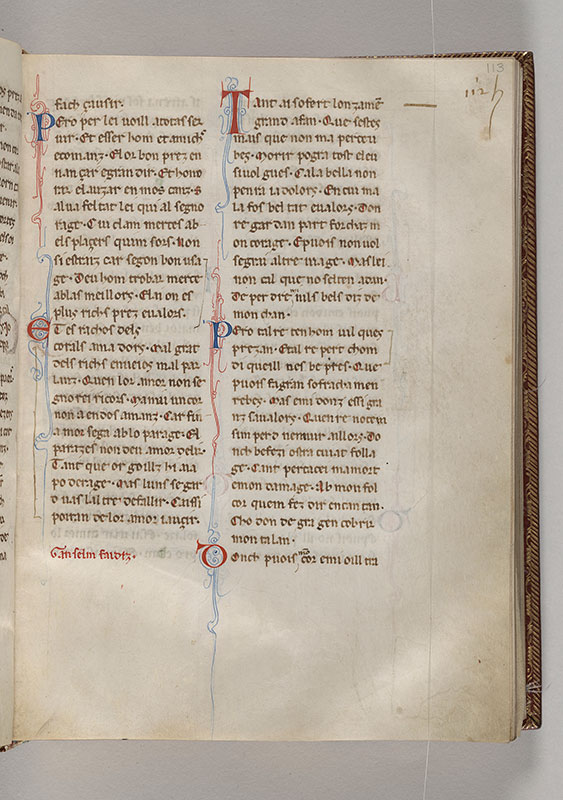 113
112
fach çausir.
Pero per lei uoill atotas ser
uir. Et esser hom et amichs
ecomanz. El or bon prez en
nan çar egran dir. Et hono
rar
sa
alua feltat lei qui al segno
ratge. Cui clam merces ab
els plaçers quim fors. Non
si estraiz car segon bon usa
ge. Deu hom trobar merce
ablas meillors. El ai on es
plus richs prez eualors.
Et es raches dels
corals ama dors. Mal grat
dels richs enueios mal par
lanz. Quen lor amor non se
gnorei ricors.
non a en dos amanz. Car fui
amor sega ablo parage. El
paratges non deu amor delir.
Tant que orgoillz hi aia
po deratge. Mas luns segar
d uas laltre de fallir. Caissi
poiran de lor amor iauçir.
Ganselm faidiz.
Tant ai sofert lonzamen
grand afan. Que sestes
mais que non ma perceu
bez. Morir pogra tost eleu
siuolgues. Cala bella non
penra ia dolors. En cui ma
la fos bel tat eualors. Don
re gar dan part forchaz m
on coratge. Epuois non uol
segrai altre uiatge. Mas lei
non cal que no
De per
mon chan.
Pero tal re ten hom uil ques
prezan. Etal re pert chom
di queill nes be pres. Que
puois fagran sofracha men
rebes. Mas emi donz essi gra
nz saualors. Quen re nocem
sim perd
nch befez
ge. Cant pert acei mamort
emon damage. Ab mon fol
cor quem fez dir en can tan.
Cho don degra gen cobrir
mon talan.
Donch puois mon cor emi oill tra